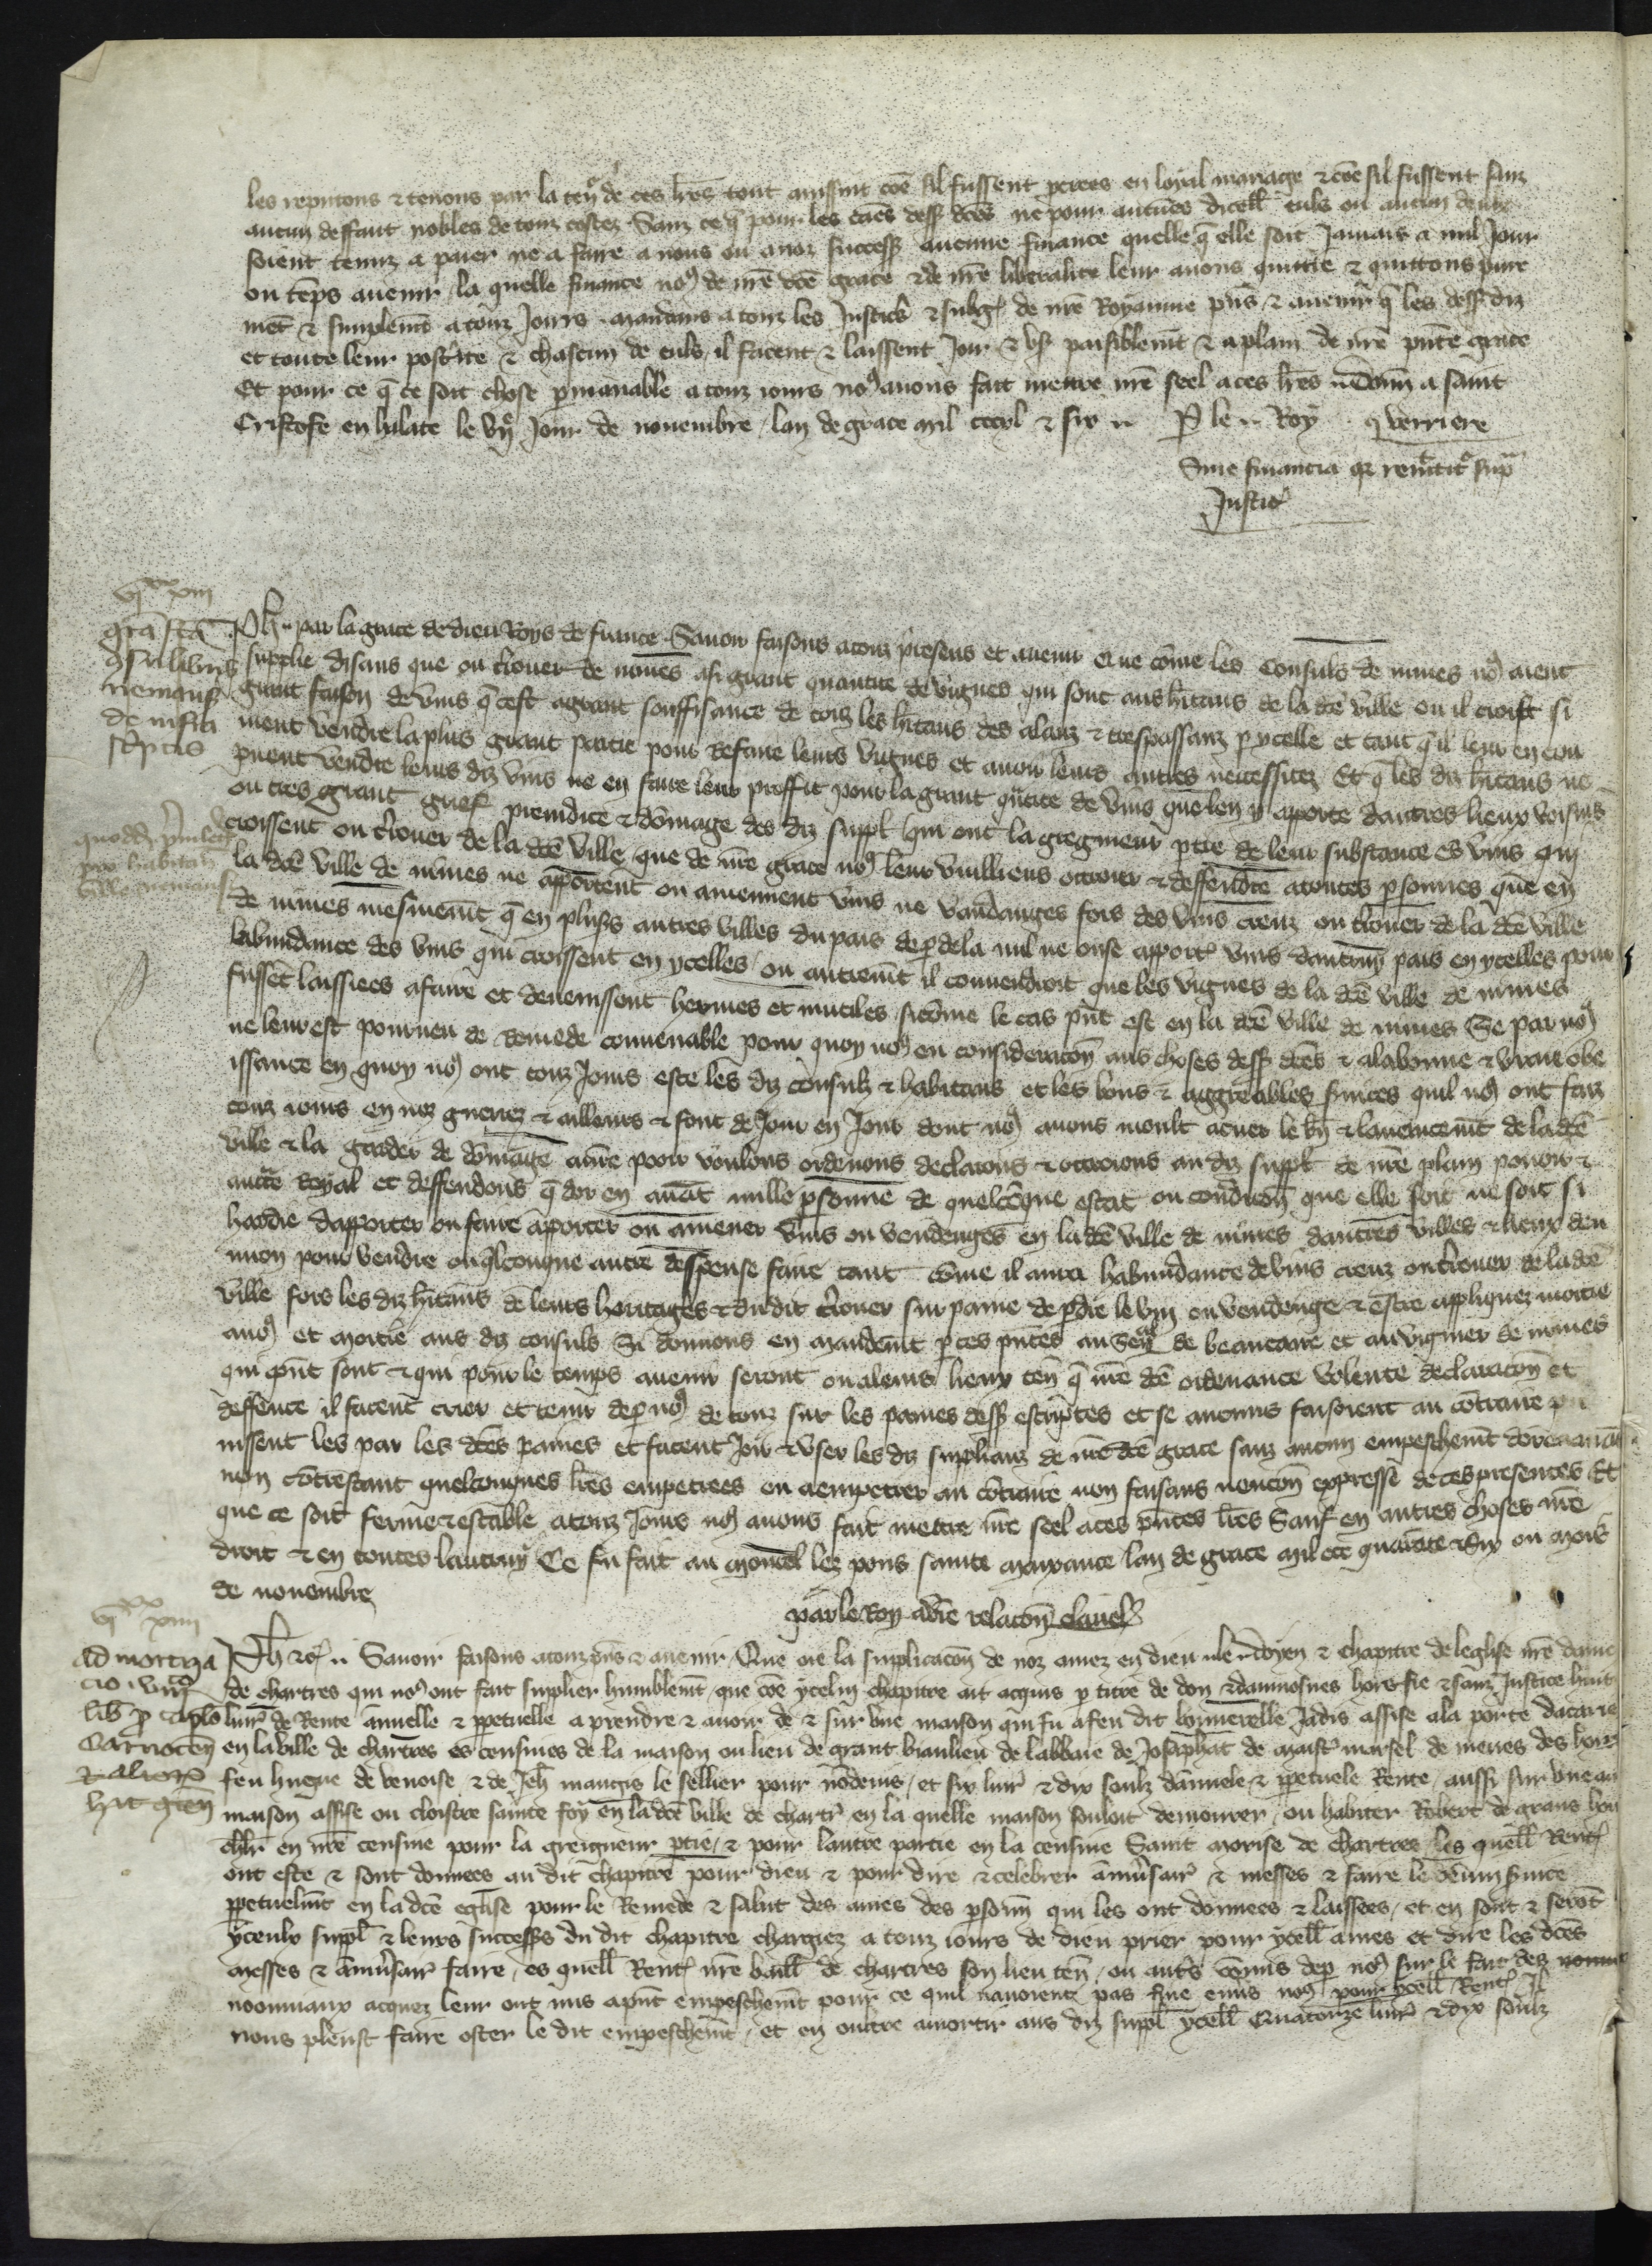 les reputons ⁊ tenons par la ten᷑ de ces lr̄es tout aussint cōe sil fussent peiees en loyal mariage ⁊ cōe sil fussent sanz
aucun deffaut nobles de touz costez Sanz ce q̄ pour les cāes dess᷑ dc̄es ne pour aucūes dicell᷑ euls ou aucun deulx
soient tenuz a paier ne a faire a nous ou a noz success᷑ aucune finance quelle q̄ elle soit Jamais a nul Jour
ou tēps auenir la quelle finance noꝰ de nr̄e dc̄e grace ⁊ de nr̄e liberalite leur auons quittie ⁊ quittons pure
mēt ⁊ simplemēt a touz Jours mandans a touz les Justic᷑ ⁊ subg᷑ de nr̄e Royaume pn̄s ⁊ auenir q̄ les dess᷑ diz
et toute leur post᷑ite ⁊ chascun de euls il facent ⁊ laissent Joir ⁊ vs᷑ paisiblemt̄ ⁊ a plain de nr̄e pn̄te grace
Et pour ce q̄ ce soit chose pmanable a touz iours noꝰ auons fait mettre nr̄e seel a ces lr̄es donn̄ a saint
Cristofe en halate le vij᷑ Jour de nouembre lan de grace mil cccxl ⁊ six .. P le .. Roy q verriere
Sine financia qz remittit᷑ sup᷑
Justic᷑
vjxx xiij
gr̄a fc̄a
9sulibus
nemaus᷑
de infra
sc̄ptis
Ph᷑ .. par la grace de dieu Roys de france Sauoir faisons a touz presens et auenir Que cōme les Consuls de nimes noꝰ aient
supplie disans que ou t᷑rouer de nimes a si grant quantite de vignes qui sont aus hītans de la dc̄e ville ou il croist si
grant foison de vins q̄ cest a grant souffisance de touz les hītans des alanz ⁊ trespassanz p ycelle et tant q̄ il leur en con
uient vendre la plus grant partie pour refaire leurs vignes et auoir leurs autres necessitez Et q̄ les diz hītans ne
puent vendre leurs diz vins ne en faire leur proffit pour la grant qu᷑tite de vins que len y apporte dautres lieux voisins
ou tres grant grief preiudice ⁊ dōmage des diz suppl᷑ qui ont la gregnieur ptie de leur substance es vins qui
croissent ou t᷑rouer de la dc̄e ville / que de nr̄e grace noꝰ leur vuilliens ottroier ⁊ deffendre a toutes psonnes que en
quodd᷑ p᷑uileg᷑
pro habitat᷑
ville nemausi
la dc̄e ville de nimes ne apportent ou amennent vins ne vandanges fors des vins creuz ou t᷑rouer de la dc̄e ville
de nimes mesmemt̄ q̄ en plus᷑s autres villes du pais de p dela nul ne onse apport᷑ vins dautruy pais en ycelles pour
labundance des vins qui croissent en ycelles / ou autremt̄ il conuendroit que les vignes de la dc̄e ville de nimes
fussēt laissiees a faire et deuenissent hermes et inutiles sicōme le cas pn̄t est en la dc̄e ville de nimes Se par noꝰ
ne leur est pourueu de remede conuenable pour quoy noꝰ en considerac̄on aus choses dess᷑ dc̄es ⁊ a la bonne ⁊ vraie obe
issance en quoy noꝰ ont touz Jours este les diz consuls ⁊ habitans et les bons ⁊ aggreables s᷑uices quil noꝰ ont faiz
touz iours en noz guerrez ⁊ ailleurs ⁊ font de Jour en Jour dont noꝰ auons moult a cuer le bn̄ ⁊ lauancemt̄ de la dc̄e
ville ⁊ la garder de dōmage a nr̄e pooir voulons ordenons declarons ⁊ ottroions au diz suppl᷑ de nr̄e plain pouoir ⁊
auct᷑te Royal et deffendons q̄ dor en auāt nulle psonne de quelcōque estat ou condicōn que elle soit ne soit si
hardie dapporter ou faire apporter ou amener vins ou vendenges en la dc̄e ville de nimes dautres villes ⁊ lieux den
uiron pour vendre ou q̄lconque autre despense faire tant cōme il aura habundance de vins creuz ou t᷑rouer de la dc̄e
ville fors les diz hītans de leurs heritages ⁊ du dit t᷑rouer sur paine de pdre le vin ou vendenge ⁊ estre appliquez moitie
a noꝰ et moitie aus diz consuls Si donnons en mandemt̄ p ces pn̄tes au Sen᷑ de beaucaire et au viguier de nimes
qui apn̄t sont ⁊ qui pour le temps auenir seront ou a leurs lieux ten᷑ q̄ nr̄e dc̄e ordenance volente declaracōn et
deffence il facent crier et tenir de p noꝰ de touz sur les paines dess᷑ escriptes et se aucuns faisoient au cōtraire pu
nissent les par les dc̄es paines et facent Joir ⁊ vser les diz suplianz de nr̄e dc̄e grace sanz aucun empeschemt̄ dorenauāt
non cōtrestant quelconques lr̄es empetrees ou a empetrer au cōtraire non faisans mencōn expresse de ces presentes Et
que ce soit ferme ⁊ estable a touz Jours noꝰ auons fait mettre nr̄e seel a ces pn̄tes lr̄es Sauf en autres choses nr̄e
droit ⁊ en toutes lautruy Ce fu fait au moncel lez pons sainte maxance lan de grace mil ccc quarāte ⁊ Six ou mois
de nouembre
par le Roy a vr̄e relacōn clauel᷑
vjxx xiiij
admortiza
cio .xiiij.
lib᷑ p caplo
Carnoten᷑
⁊ alior᷑
hīt grēn
Ph᷑ ⁊c᷑ .. Sauoir faisons a touz pn̄s ⁊ auenir / Que oie la suplicacōn de noz amez en dieu .. le .. doyen ⁊ chapitre de leglise nr̄e dame
de chartres qui noꝰ ont fait suplier humblemt̄ / que cōe ycelui chapitre ait acquis p titre de don ⁊ daumosnes hors fie ⁊ sanz Justice huit
liur᷑ de Rente annuelle ⁊ ppetuelle a prendre ⁊ auoir de ⁊ sur vne maison qui fu a feu dit bonnerelle Jadis assise a la porte dacarie
en la ville de chartres es censiues de la maison ou lieu de grant biaulieu de labbaie de Josaphat de maist᷑ marsel de meues des hoirs
feu hugue de venoise ⁊ de Jeh᷑ maugis le sellier pour Jndeuis / et six liur᷑ ⁊ dix soulz dānuele ⁊ ppetuele Rente / aussi sur vne au
maison assise ou cloistre sainte foy en la dc̄e ville de chartr᷑ en la quelle maison souloit demourer / ou habiter Robert de grans hou
chlr̄ en nr̄e censiue pour la greigneur ptie / ⁊ pour lautre partie en la censiue Saint morise de chartres les quell᷑ Rent᷑
ont este ⁊ sont donnees au dit chapitre pour dieu ⁊ pour dire ⁊ celebrer āniūsair᷑ ⁊ messes ⁊ faire le diuin s᷑uice
ppetuelmt̄ en la dc̄e eglise pour le Remede ⁊ salut des ames des psonn᷑ qui les ont donnees ⁊ laissees / et en sont ⁊ serōt
yceulx suppl᷑ ⁊ leurs success᷑s du dit chapitre chargiez a touz iours de dieu prier pour ycell᷑ ames et dire les dc̄es
messes ⁊ āniūsair᷑ faire / es quell᷑ Rent᷑ nr̄e baill᷑ de chartres son lieu ten᷑ / ou aut᷑s cōmis de p noꝰ sur le fait des
nouuiaux acquez leur ont mis apn̄t empeschemt̄ pour ce quil nauoient pas fine en᷑s noꝰ pour ycell᷑ Rent᷑ Jl
nous pleust faire oster le dit empeschemt̄ / et en oultre amortir aus diz suppl᷑ ycell᷑ Quatorze liur᷑ ⁊ dix soulz